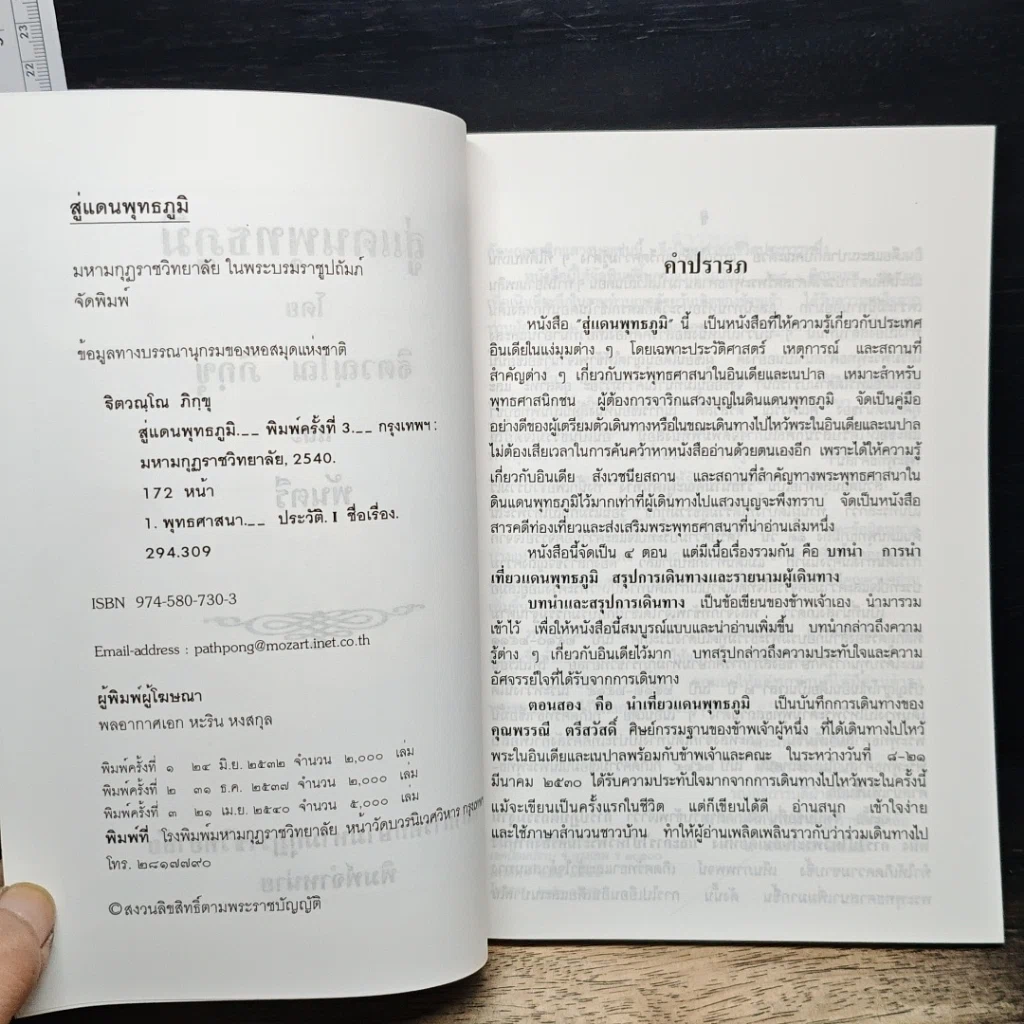 23
22
สู่แดนพุทธภูมิ
มหามกุฏราชวิทยาลัย ในพระบรมราชูปถัมภ์
จัดพิมพ์
ข้อมูลทางบรรณานุกรมของหอสมุดแห่งชาติ
ฐิตวณฺโณ ภิกฺขุ
สู่แดนพุทธภูมิ.__ พิมพ์ครั้งที่ 3.__ กรุงเทพฯ :
มหามกุฏราชวิทยาลัย, 2540.
172 หน้า
1. พุทธศาสนา.__ ประวัติ. I ชื่อเรื่อง.
294.309
ISBN 974-580-730-3
Email-address : pathpong@mozart.inet.co.th
ผู้พิมพ์ผู้โฆษณา
พลอากาศเอก หะริน หงสกุล
พิมพ์ครั้งที่ ๑ ๒๔ มิ.ย. ๒๕๓๒ จำนวน ๒,๐๐๐ เล่ม
พิมพ์ครั้งที่ ๒ ๓๑ ธ.ค. ๒๕๓๗ จำนวน ๒,๐๐๐ เล่ม
พิมพ์ครั้งที่ ๓ ๒๑ เม.ย. ๒๕๔๐ จำนวน ๕,๐๐๐ เล่ม
พิมพ์ที่ โรงพิมพ์มหามกุฏราชวิทยาลัย หน้าวัดบวรนิเวศวิหาร กรุงเทพ
โทร. ๒๘๑๗๗๙๐
© สงวนลิขสิทธิ์ตามพระราชบัญญัติ
คำปรารภ
หนังสือ "สู่แดนพุทธภูมิ" นี้ เป็นหนังสือที่ให้ความรู้เกี่ยวกับประเทศ
อินเดียในแง่มุมต่าง ๆ โดยเฉพาะประวัติศาสตร์ เหตุการณ์ และสถานที่
สำคัญต่าง ๆ เกี่ยวกับพระพุทธศาสนาในอินเดียและเนปาล เหมาะสำหรับ
พุทธศาสนิกชน ผู้ต้องการจาริกแสวงบุญในดินแดนพุทธภูมิ จัดเป็นคู่มือ
อย่างดีของผู้เตรียมตัวเดินทางหรือในขณะเดินทางไปไหว้พระในอินเดียและเนปาล
ไม่ต้องเสียเวลาในการค้นคว้าหาหนังสืออ่านด้วยตนเองอีก เพราะได้ให้ความรู้
เกี่ยวกับอินเดีย สังเวชนียสถาน และสถานที่สำคัญทางพระพุทธศาสนาใน
ดินแดนพุทธภูมิไว้มากเท่าที่ผู้เดินทางไปแสวงบุญจะพึงทราบ จัดเป็นหนังสือ
สารคดีท่องเที่ยวและส่งเสริมพระพุทธศาสนาที่น่าอ่านเล่มหนึ่ง
หนังสือนี้จัดเป็น ๔ ตอน แต่มีเนื้อเรื่องรวมกัน คือ บทนำ การนำ
เที่ยวแดนพุทธภูมิ สรุปการเดินทางและรายนามผู้เดินทาง
บทนำและสรุปการเดินทาง เป็นข้อเขียนของข้าพเจ้าเอง นำมารวม
เข้าไว้ เพื่อให้หนังสือนี้สมบูรณ์แบบและน่าอ่านเพิ่มขึ้น บทนำกล่าวถึงความ
รู้ต่าง ๆ เกี่ยวกับอินเดียไว้มาก บทสรุปกล่าวถึงความประทับใจและความ
อัศจรรย์ใจที่ได้รับจากการเดินทาง
ตอนสอง คือ นำเที่ยวแดนพุทธภูมิ เป็นบันทึกการเดินทางของ
คุณพรรณี ตรีสวัสดิ์ ศิษย์กรรมฐานของข้าพเจ้าผู้หนึ่ง ที่ได้เดินทางไปไหว้
พระในอินเดียและเนปาลพร้อมกับข้าพเจ้าและคณะ ในระหว่างวันที่ ๘-๒๑
มีนาคม ๒๕๓๐ ได้รับความประทับใจมากจากการเดินทางไปไหว้พระในครั้งนี้
แม้จะเขียนเป็นครั้งแรกในชีวิต แต่ก็เขียนได้ดี อ่านสนุก เข้าใจง่าย
และใช้ภาษาสำนวนชาวบ้าน ทำให้ผู้อ่านเพลิดเพลินราวกับว่าร่วมเดินทางไป